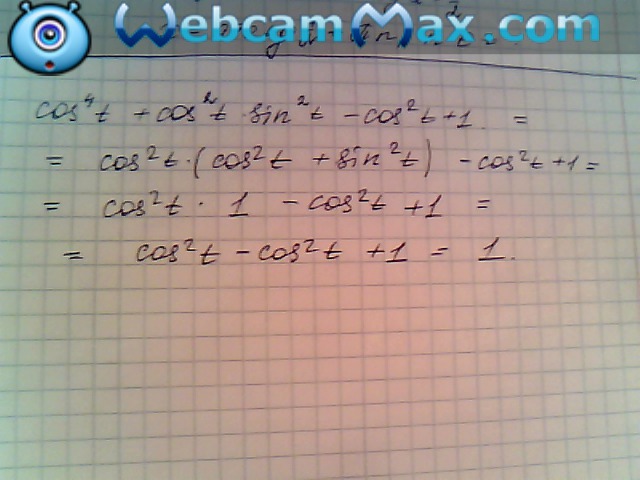 WebcamMax.com
cos⁴t + cos²t · sin²t - cos²t + 1 =
= cos²t · (cos²t + sin²t) - cos²t + 1 =
= cos²t · 1 - cos²t + 1 =
= cos²t - cos²t + 1 = 1.